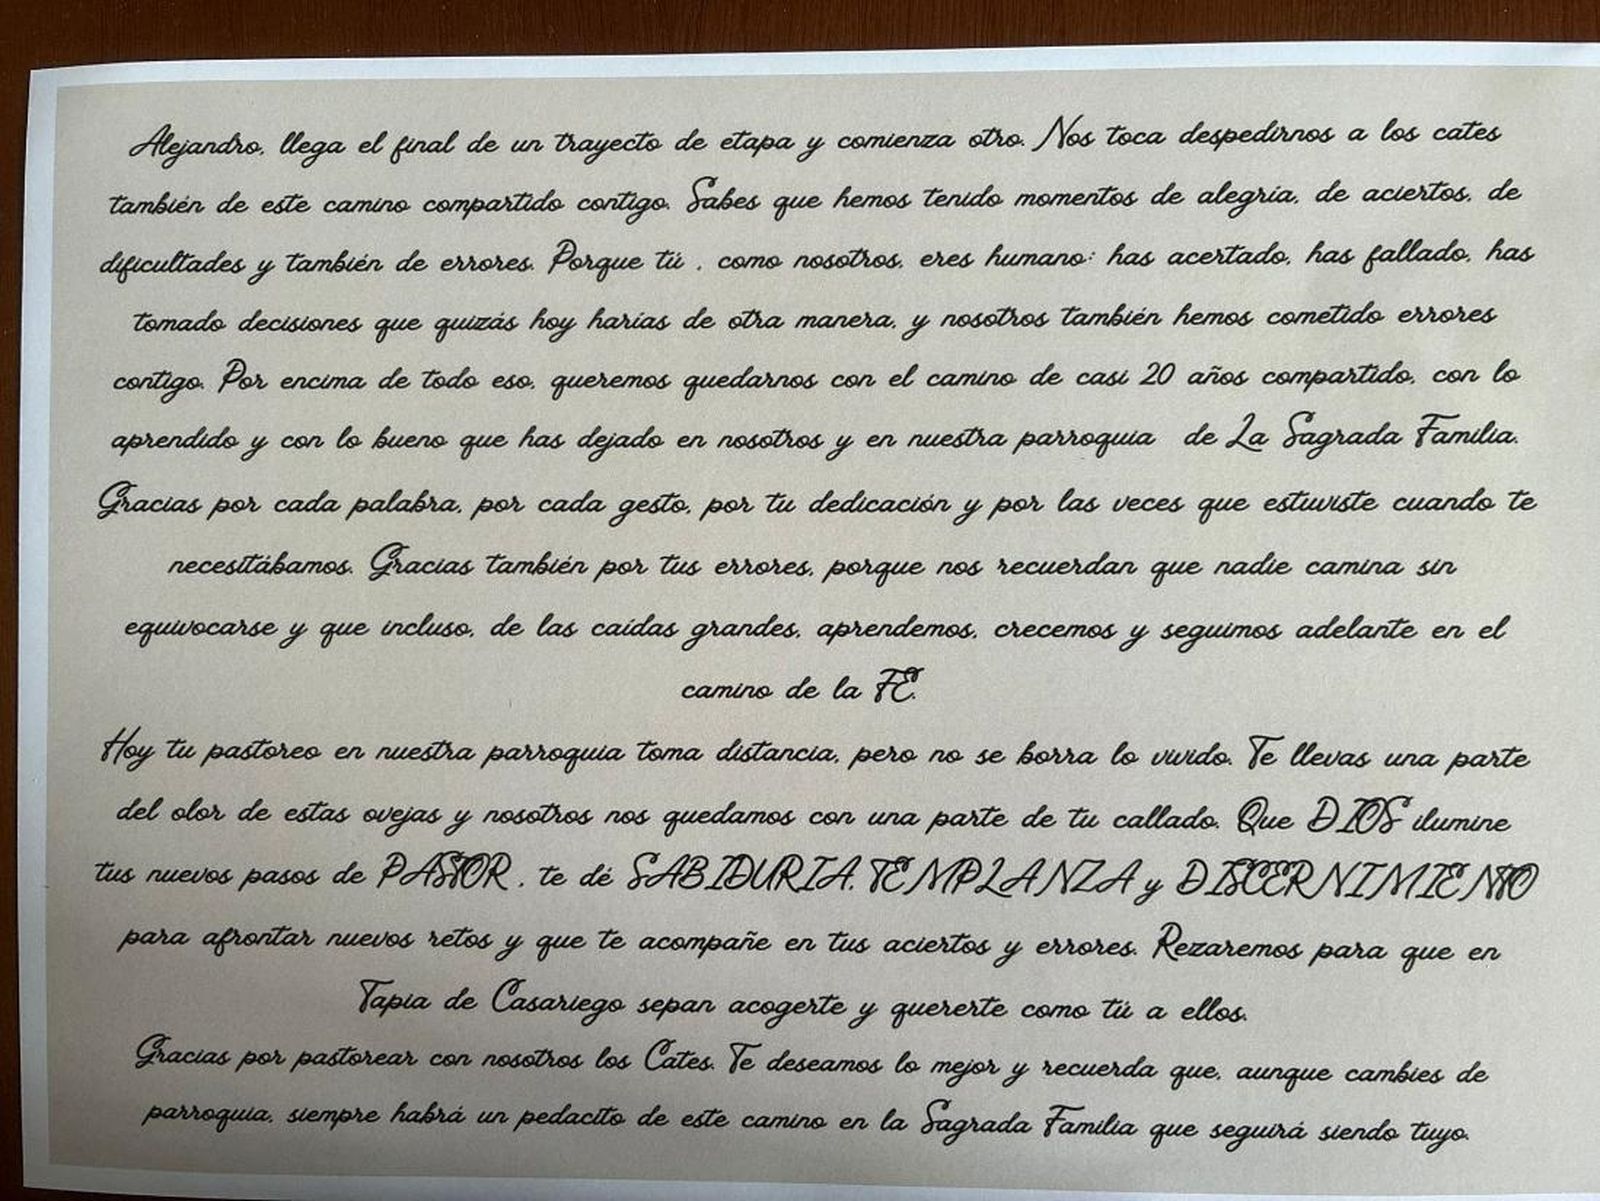 Alejandro, llega el final de un trayecto de etapa y comienza otro. Nos toca despedirnos a los cates
también de este camino compartido contigo. Sabes que hemos tenido momentos de alegría, de aciertos, de
dificultades y también de errores. Porque tú , como nosotros, eres humano: has acertado, has fallado, has
tomado decisiones que quizás hoy harías de otra manera, y nosotros también hemos cometido errores
contigo. Por encima de todo eso, queremos quedarnos con el camino de casi 20 años compartido, con lo
aprendido y con lo bueno que has dejado en nosotros y en nuestra parroquia de La Sagrada Familia.
Gracias por cada palabra, por cada gesto, por tu dedicación y por las veces que estuviste cuando te
necesitábamos. Gracias también por tus errores, porque nos recuerdan que nadie camina sin
equivocarse y que incluso, de las caídas grandes, aprendemos, crecemos y seguimos adelante en el
camino de la FE.
Hoy tu pastoreo en nuestra parroquia toma distancia, pero no se borra lo vivido. Te llevas una parte
del olor de estas ovejas y nosotros nos quedamos con una parte de tu callado. Que DIOS ilumine
tus nuevos pasos de PASTOR , te dé SABIDURIA, TEMPLANZA y DISCERNIMIENTO
para afrontar nuevos retos y que te acompañe en tus aciertos y errores. Rezaremos para que en
Tapia de Casariego sepan acogerte y quererte como tú a ellos.
Gracias por pastorear con nosotros los Cates. Te deseamos lo mejor y recuerda que, aunque cambies de
parroquia, siempre habrá un pedacito de este camino en la Sagrada Familia que seguirá siendo tuyo.